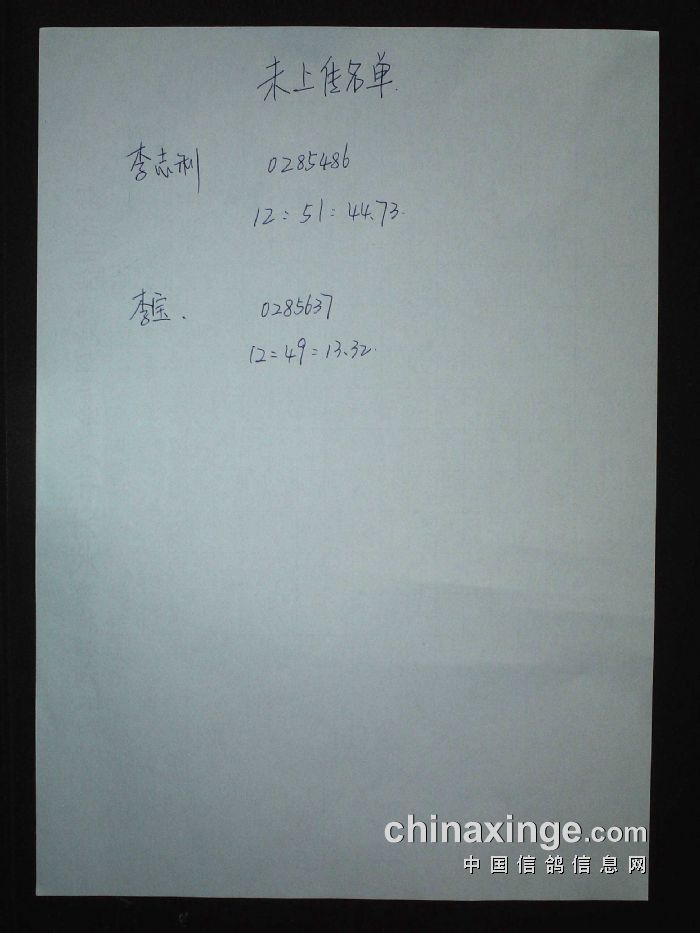 未上传名单.
李志利 0285486
12:51:44.73.
李宝. 0285637
12:49:13.32.
chinaxinge.com
中国信鸽信息网